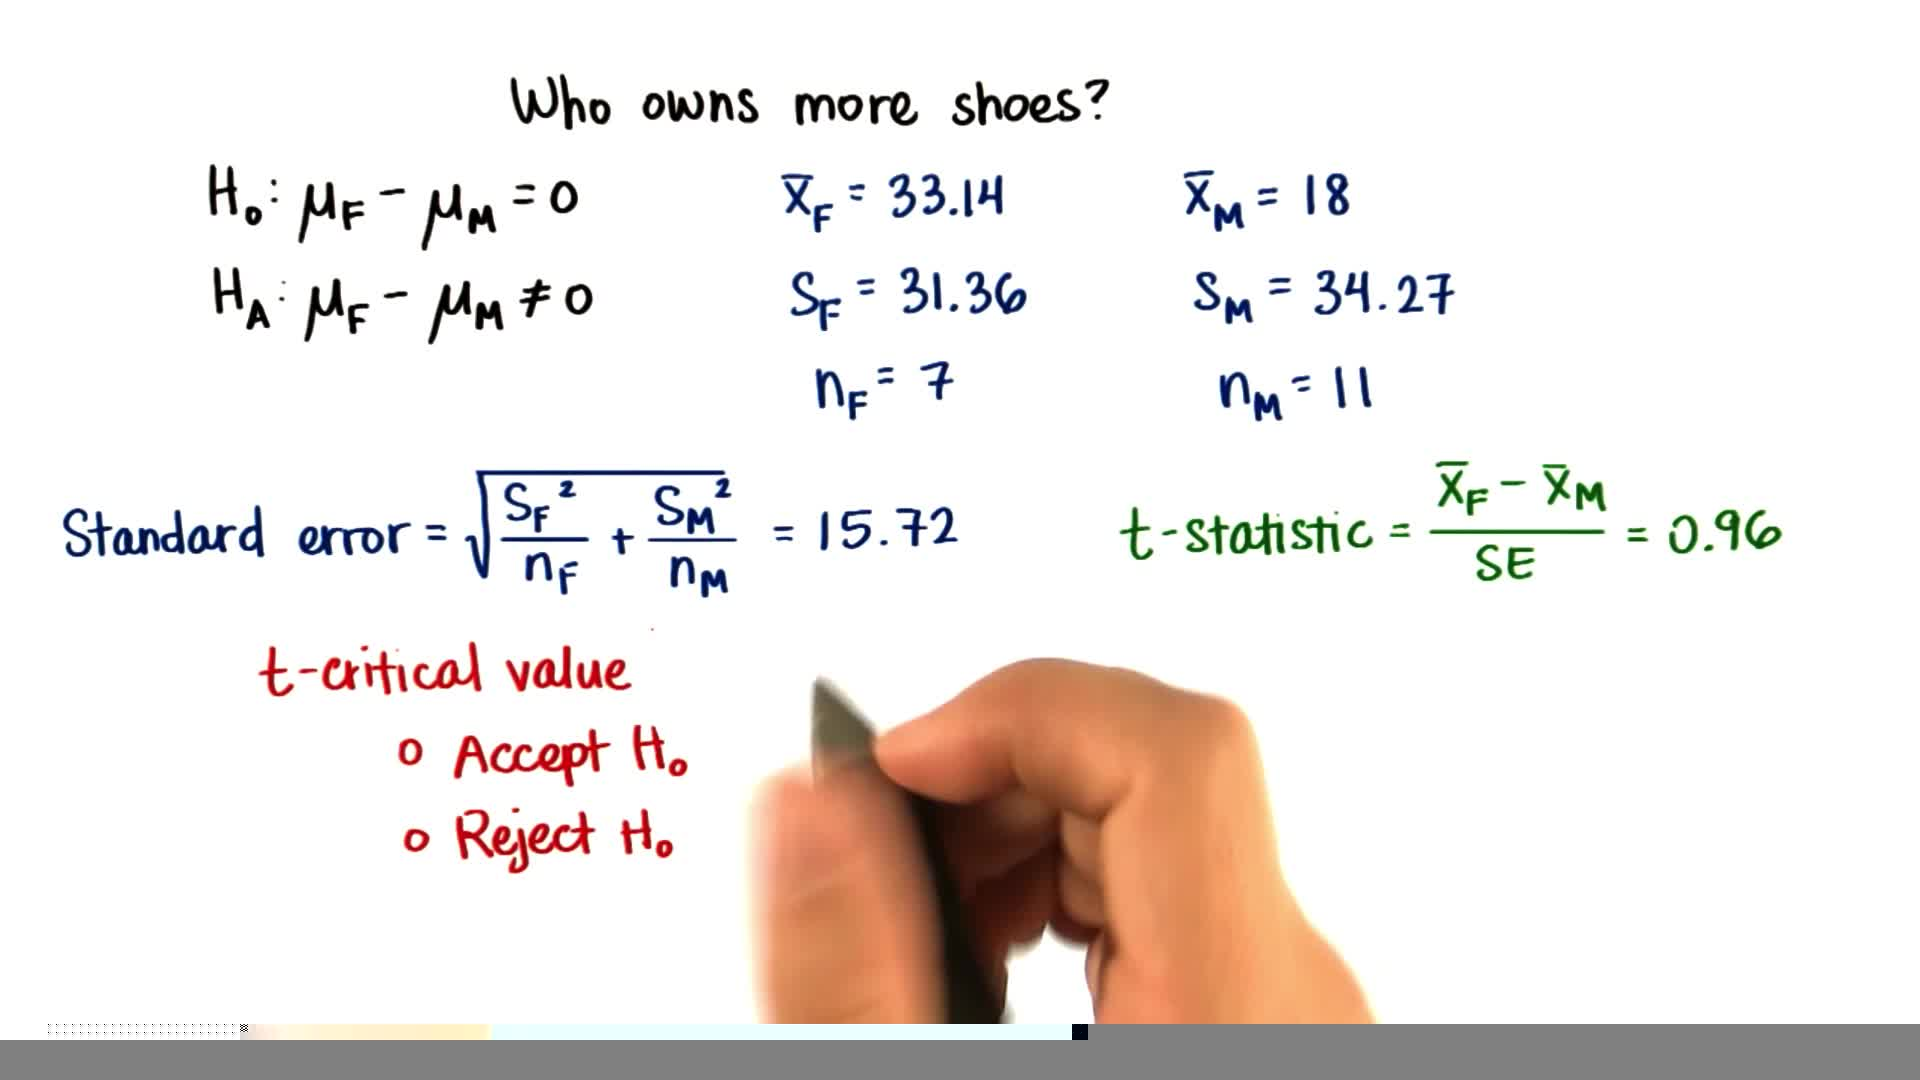 Who owns more shoes?
H₀: μF - μM = 0
HA: μF - μM ≠ 0
x̄F = 33.14
SF = 31.36
nF = 7
x̄M = 18
SM = 34.27
nM = 11
Standard error = √(SF²/nF + SM²/nM) = 15.72
t-statistic = (x̄F - x̄M)/SE = 0.96
t-critical value
o Accept H₀
o Reject H₀